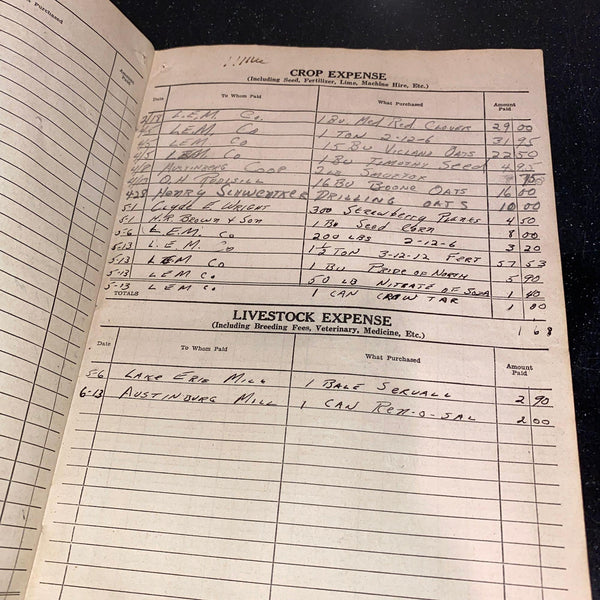 Purchased
Amount
Paid
CROP EXPENSE
(Including Seed, Fertilizer, Lime, Machine Hire, Etc.)
Date To Whom Paid What Purchased Amount Paid
2/18 L.E.M. Co. 1 Bu Med Red Clover 29 00
4/5 L.E.M. Co 1 Ton 2-12-6 31 95
4/5 L.E.M. Co 15 Bu Vicland Oats 22 50
4/5 L.E.M. Co 1 Bu Timothy Seed 4 95
Austinburg Coop 2 LB
16 Bu Boone Oats 16 00
4-28 Henry Drilling Oats 10 00
5-1 Clyde E Wright 300 Strawberry Plants 4 50
5-1 Brown & Son 1 Bu Seed Corn 8 00
5-6 L.E.M. Co 200 LBS 2-12-6 3 20
5-13 L.E.M. Co 1 1/2 Ton 3-12-12 Fert 57 53
5-13 LEM Co 1 Bu Pride of North 5 90
5-13 LEM Co. 50 LB Nitrate of Soda 1 40
5-13 LEM Co 1 Can Crow Tar 1 00
TOTALS 168
LIVESTOCK EXPENSE
(Including Breeding Fees, Veterinary, Medicine, Etc.)
Date To Whom Paid What Purchased Amount Paid
5-6 Lake Erie Mill 1 Bale Servall 2 90
6-13 Austinburg Mill 1 Can Ren-O-Sal 2 00